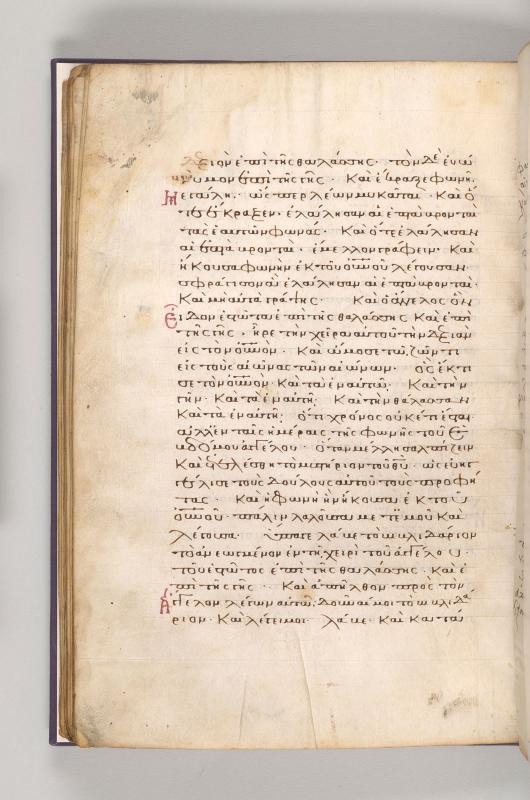 δεξιὸν ἐπὶ τῆς θαλάσσης· τὸν δὲ εὐώ
νυμον ἐπὶ τῆς γῆς· Καὶ ἔκραξε φωνῇ
μεγάλη· ὥσπερ λέων μυκᾶται· Καὶ ὅ
τε ἔκραξεν· ἐλάλησαν αἱ ἑπτὰ βρονταὶ
τὰς ἑαυτῶν φωνάς· Καὶ ὅτε ἐλάλησαν
αἱ ἑπτὰ βρονταί· ἔμελλον γράφειν· Καὶ
ἤκουσα φωνὴν ἐκ τοῦ ουνοῦ λέγουσαν·
σφράγισον ἃ ἐλάλησαν αἱ ἑπτὰ βρονταί·
Καὶ μὴ αὐτὰ γράψης· Καὶ ὁ ἄγγελος ὃν
εἶδον ἑστῶτα ἐπὶ τῆς θαλάσσης Καὶ ἐπὶ
τῆς γῆς· ἦρε τὴν χεῖρα αὐτοῦ τὴν δεξιὰν
εἰς τὸν ουνόν· Καὶ ὤμοσε τῶ ζῶντι
εἰς τοὺς αἰῶνας τῶν αἰώνων· ὃς ἔκτι
σε τὸν ουνόν· Καὶ τὰ ἐν αὐτῶ· Καὶ τὴν
γῆν· Καὶ τὰ ἐν αὐτῆ· Καὶ τὴν θάλασσαν
Καὶ τὰ ἐν αὐτῆ· ὅτι χρόνος οὐκέτι ἔσται·
ἀλλ' ἐν ταῖς ἡμέραις τῆς φωνῆς τοῦ ἑ
βδόμου ἀγγέλου· ὅταν μέλλη σαλπίζειν
Καὶ ἐτελέσθη τὸ μυστήριον τοῦ θυ· ὡς εὐηγ
γέλισε τοὺς δούλους αὐτοῦ τοὺς προφή
τας· Καὶ ἡ φωνὴ ἣν ἤκουσα ἐκ τοῦ
ουνοῦ· πάλιν λαλοῦσα μετ' ἐμοῦ Καὶ
λέγουσα· ὕπαγε λάβε τὸ βιβλιδάριον
τὸ ἀνεωγμένον ἐν τῆ χειρὶ τοῦ ἀγγέλου·
τοῦ ἑστῶτος ἐπὶ τῆς θαλάσσης· Καὶ ἐ
πὶ τῆς γῆς· Καὶ ἀπῆλθον πρὸς τὸν
ἄγγελον λέγων αὐτῶ· δοῦναί μοι τὸ βιβλιδά
ριον· Καὶ λέγει μοι· λάβε· Καὶ κατά